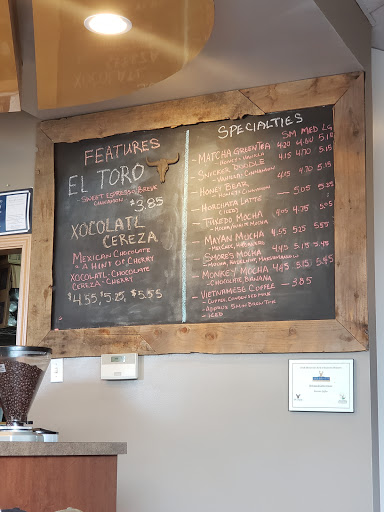 FEATURES
EL TORO
- SWEET ESPRESSO BREVE
CINNAMON
$3.85
XOCOLATL
CEREZA
MEXICAN CHOCOLATE
& A HINT OF CHERRY
XOCOLATL - CHOCOLATE
CEREZA - CHERRY
$4.55, $5.25, $5.55
SPECIALTIES
SM MED LG
- MATCHA GREEN TEA 4.20 4.60 5.15
- HONEY + VANILLA
- SNICKER DOODLE 4.15 4.70 5.15
- HONEY BEAR 4.15 4.70 5.15
- HONEY + CINNAMON
- HORCHATA LATTE — 5.05 5.25
(ICED)
- TUXEDO MOCHA 4.05 4.75 5.05
- MAYAN MOCHA 4.55 5.25 5.55
- SMORE'S MOCHA 4.45 5.15 5.45
- MOCHA, HAZELNUT, MARSHMALLOW
- MONKEY MOCHA 4.45 5.15 5.45
- CHOCOLATE, BANANA
- VIETNAMESE COFFEE — 3.85
- COFFEE, CONDENSED MILK
- ICED